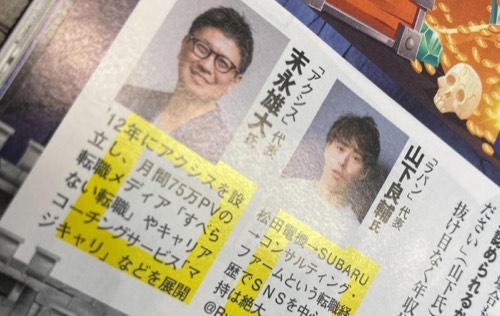 「アクシス」代表
末永雄大氏
'12年にアクシスを設
立し、月間75万PVの
転職メディア「すべら
ない転職」やキャリア
コーチングサービス「マ
ジキャリ」などを展開
「ラバン」代表
山下良輔氏
松田電機→SUBARU
→コンサルティング・
ファームという転職経
歴でSNSを中心
持は絶大
認められるか
ださい」(山下氏)
抜け目なく年収